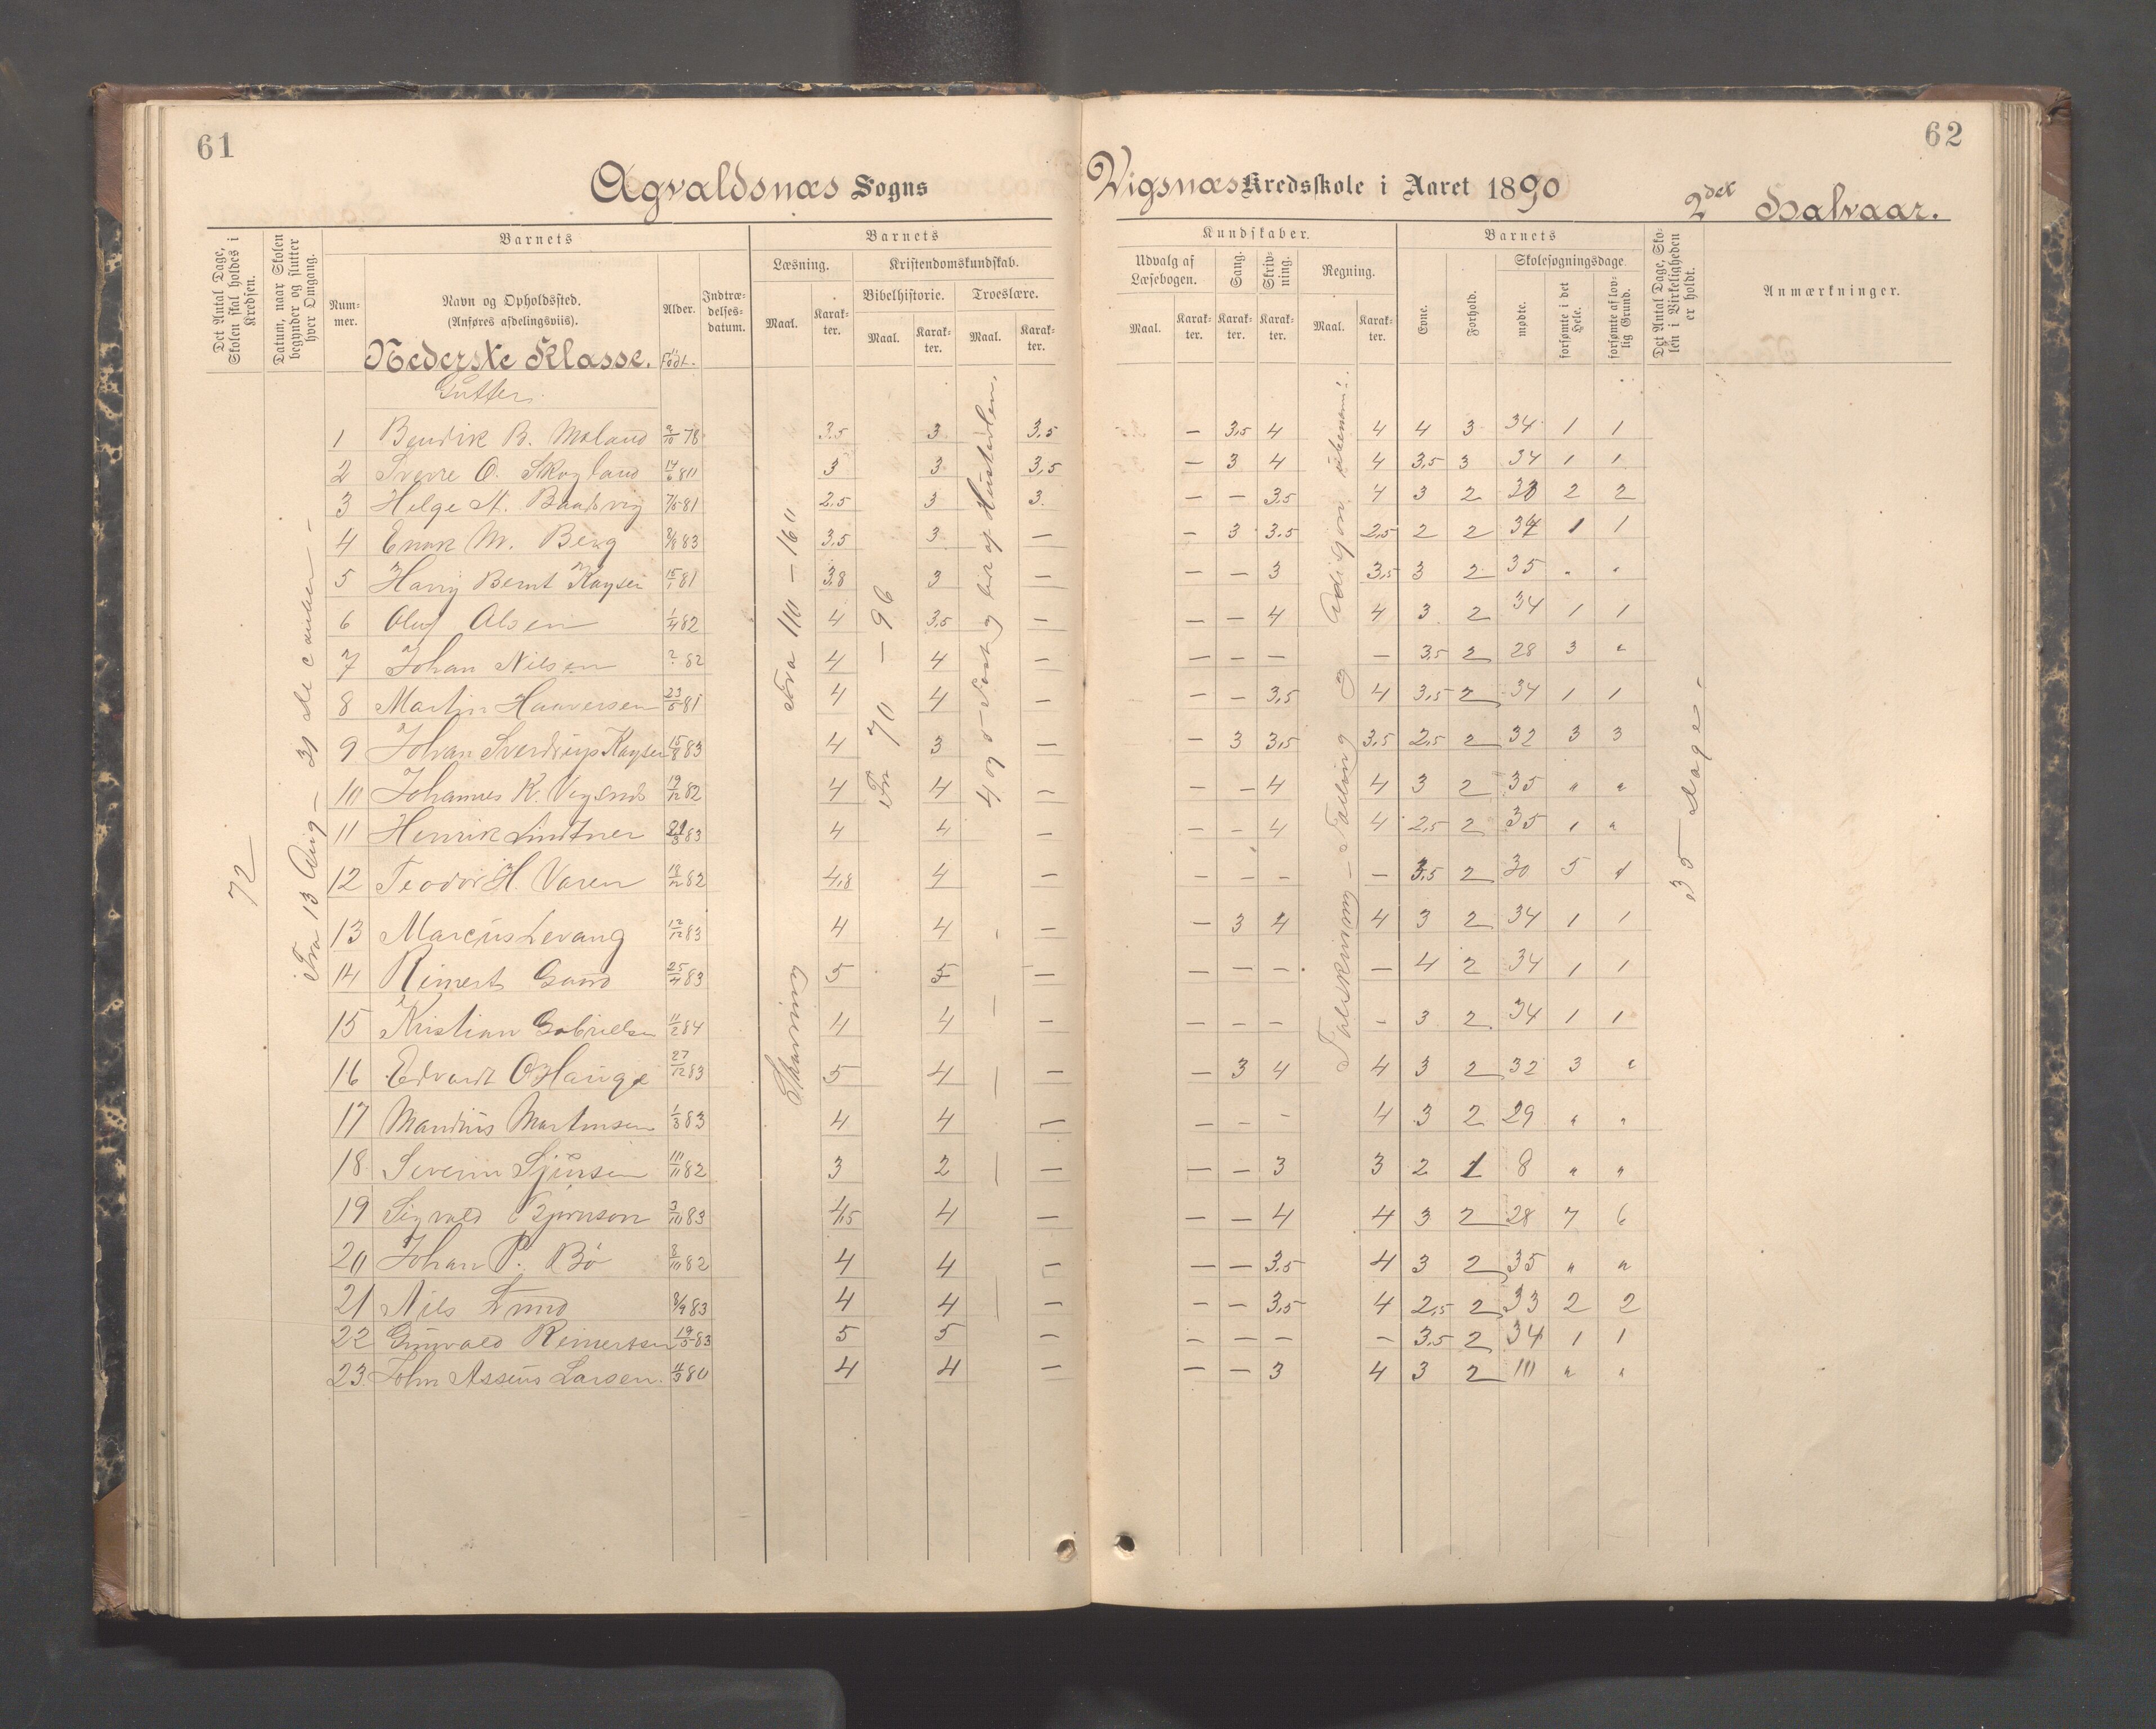 61
62
Agvaldsnæs Sogns
Vigsnæs Kredsskole i Aaret 1890
2det Halvaar.
Det Antal Dage, Skolen skal holdes i Kredsen.
Datum, naar Skolen begynder og slutter hver Omgang.
Barnets
Barnets
Kundskaber.
Barnets
Det Antal Dage, Skolen i Virkeligheden er holdt.
Anmærkninger.
Nummer.
Navn og Opholdssted. (Anføres afdelingsviis).
Alder.
Indtrædelsesdatum.
Læsning.
Kristendomskundskab.
Bibelhistorie.
Troeslære.
Maal.
Karakter.
Maal.
Karakter.
Maal.
Karakter.
Udvalg af Læsebogen.
Sang.
Skrivning.
Regning.
Maal.
Karakter.
Karakter.
Karakter.
Maal.
Karakter.
Evne.
Forhold.
Skolesøgningsdage.
mødte.
forsømte i det Hele.
forsømte af lovlig Grund.
Nederste Klasse. Født.
Gutter.
72
Fra 13 Aug – 31 December –
Fra 110 – 160
Stavning
Fr 70 – 96
Talskrivning – Tælling
35 dage.
1 Bendik B. Moland 2/10 78 3.5 3 3,5 – 3,5 4 4 4 3 34 1 1
2 Sverre O. Skogland 14/6 80 3 3 3,5 – 3 4 4 3,5 3 34 1 1
3 Helge A. Baadsvig 7/5 81 2,5 3 3 – – 3,5 4 3 2 33 2 2
4 Enok M. Berg 8/8 83 3,5 3 – – 3 3.5 2,5 2 2 34 1 1
5 Harry Bernt Kayser 15/1 81 3,8 3 – – – 3 3,5 3 2 35 " "
6 Oluf Olsen 1/4 82 4 3,5 – – – 4 4 3 2 34 1 1
7 Johan Nilsen ? 82 4 4 – – – – – 3,5 2 28 3 "
8 Martin Haaversen 23/5 81 4 4 – – – 3,5 4 3,5 2 34 1 1
9 Johan Sverdrup Kayser 15/8 83 4 3 – – 3 3,5 3,5 2,5 2 32 3 3
10 Johannes K. Vigsnes 19/12 82 4 4 – – – 4 4 3 2 35 " "
11 Henrik Lindtner 21/8 83 4 4 – – – 4 4 2,5 2 35 " "
12 Teodor H. Varen 18/12 82 4,8 4 – – – – – 3,5 2 30 5
13 Marcus Levang 12/12 83 4 4 – – 3 4 4 3 2 34 1 1
14 Reinert Gand 25/4 83 5 5 – – – – – 4 2 34 1 1
15 Kristian Gabrielsen 11/2 84 4 4 – – – – – 3 2 34 1 1
16 Edvardt O Hauge 27/12 83 5 4 – – 3 4 4 3 2 32 3 "
17 Mandius Martinsen 1/3 83 4 4 – – – – 4 3 2 29 " "
18 Severin Sjursen 10/11 82 3 2 – – – 3 3 2 1 8 " "
19 Sigvald Bjørnson 3/10 83 4,5 4 – – – 4 4 3 2 28 7 6
20 Johan P. Bø 8/10 82 4 4 – – – 3.5 4 3 2 35 " "
21 Nils Lund 8/9 83 4 4 – – – 3,5 4 2,5 2 33 2 2
22 Gunvald Reinertsen 19/5 83 5 5 – – – – – 3,5 2 34 1 1
23 John Assius Larsen. 4/3 80 4 4 – – – 3 4 3 2 10 " "